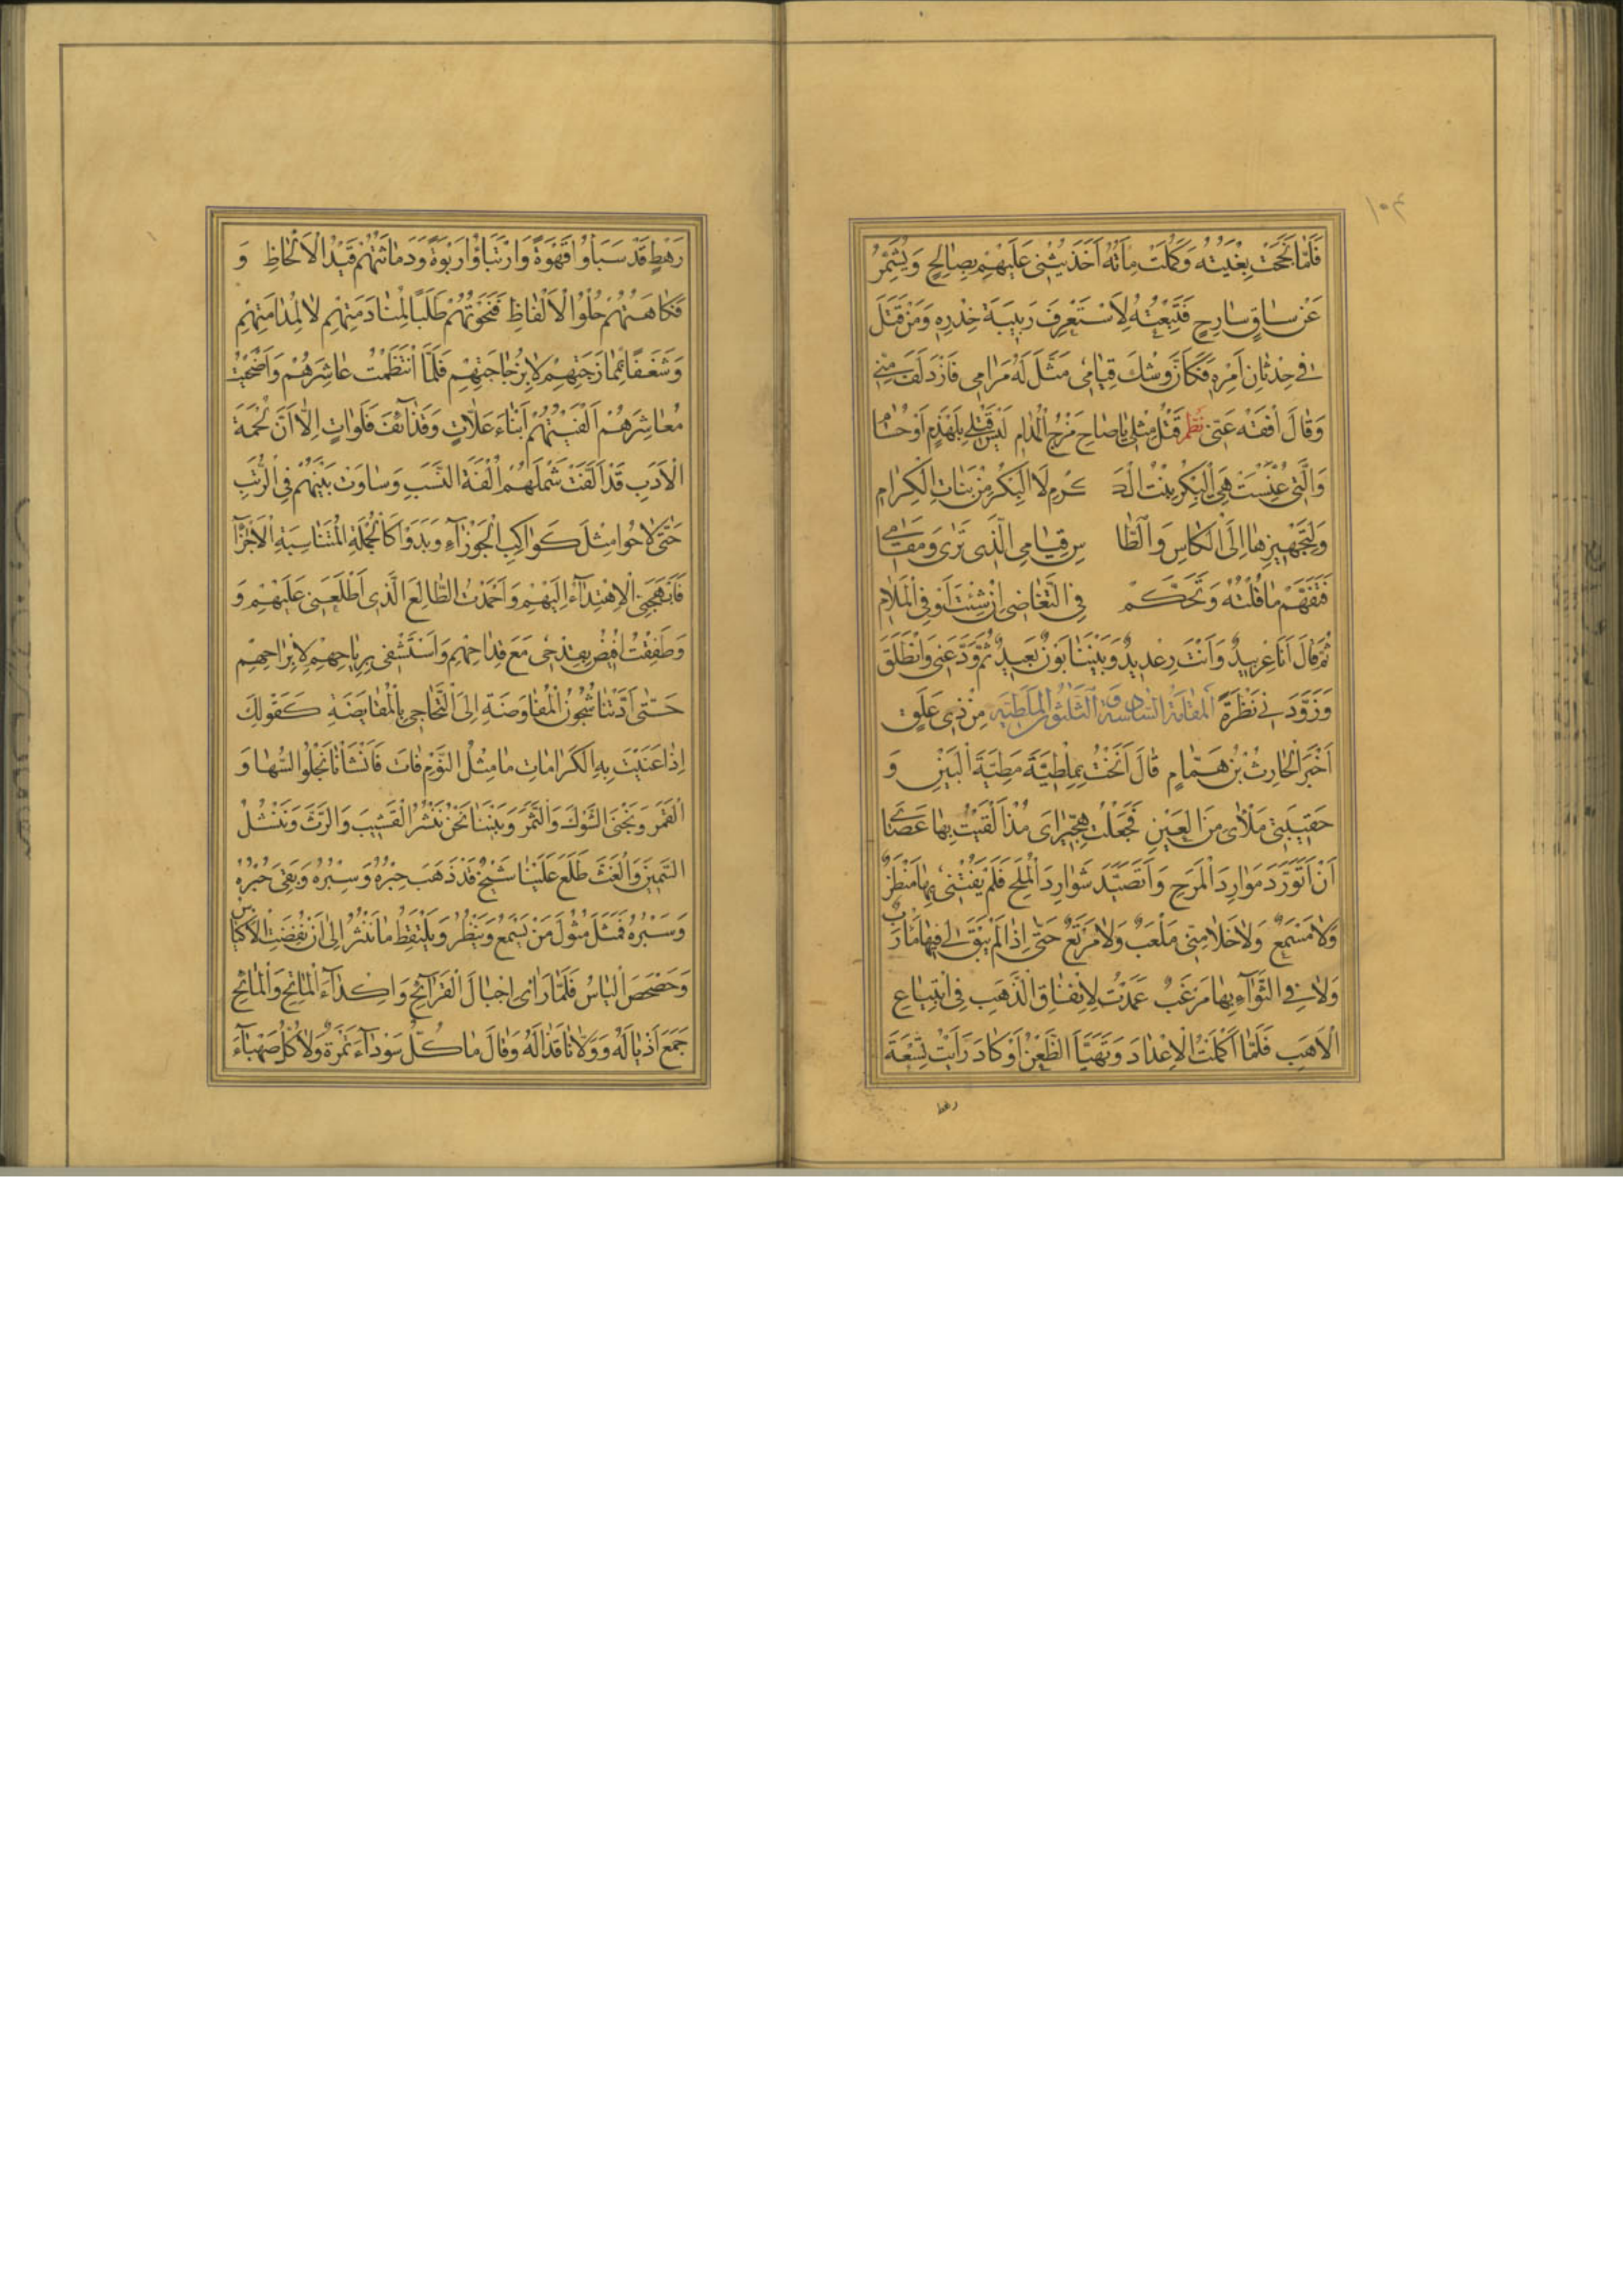 ١٠٣
فَلَمَّا نَجَحَتْ بِغْيَتُهُ وَكَمُلَتْ مِأَتُهُ اَخَذَ يُثْنِى عَلَيْهِمْ بِصَالِحٍ وَيُشَمِّرُ
عَنْ سَاقٍ سَارِحٍ فَتَبِعْتُهُ لِاَسْتَعْرِفَ رَبِيبَةَ خِدْرِهِ وَمَنْ قَتَلَ
فِى حِدْثَانِ اَمْرِهِ فَكَاَنَّ وَشْكَ قِيَامِى مَثَّلَ لَهُ مَرَامِى فَازْدَلَفَ مِنِّى
وَقَالَ اِفْقَهْ عَنِّى نظم قَتْلُ مِثْلِى يَا صَاحِ مَزْجُ الْمُدَامِ لَيْسَ قَتْلِى بِلَهْذَمٍ اَوْ حُسَامِ
وَالَّتِى عُنِّسَتْ هِىَ الْبِكْرُ بِنْتُ الْكَ كَرْمِ لَا الْبِكْرُ مِنْ بَنَاتِ الْكِرَامِ
وَلِتَجْهِيزِهَا اِلَى الْكَاسِ وَالطَّا سِ قِيَامِى الَّذِى تَرَى وَمَقَامِى
فَتَفَهَّمْ مَا قُلْتُهُ وَتَحَكَّمْ فِى التَّغَاضِى اِنْ شِئْتَ اَوْ فِى الْمَلَامِ
ثُمَّ قَالَ اَنَا عِرْبِيدٌ وَاَنْتَ رِعْدِيدٌ وَبَيْنَنَا بَوْنٌ بَعِيدٌ ثُمَّ وَدَّعَنِى وَانْطَلَقَ
وَزَوَّدَنِى نَظْرَةً المَقَامَةُ السَّادِسَةُ وَ الثَّلٰثُونَ المَلَطِيَّه مِنْ ذِى عَلَقٍ
اَخْبَرَ الْحَارِثُ بْنُ هَمَّامٍ قَالَ اَنَخْتُ بِمَلَطِيَّةَ مَطِيَّةَ الْبَيْنِ وَ
حَقِيبَتِى مَلْاٰى مِنَ الْعَيْنِ فَجَعَلْتُ هِجِّيرَاىَ مُذْ اَلْقَيْتُ بِهَا عَصَاىَ
اَنْ اَتَوَرَّدَ مَوَارِدَ الْمَرَحِ وَاَتَصَيَّدَ شَوَارِدَ الْمُلَحِ فَلَمْ يَفُتْنِى بِهَا مَنْظَرٌ
وَلَا مَسْمَعٌ وَلَا خَلَا مِنِّى مَلْعَبٌ وَلَا مَرْتَعٌ حَتّٰى اِذَا لَمْ يَبْقَ لِى فِيهَا مَاْرَبٌ
وَلَا فِى الثَّوَآءِ بِهَا مَرْغَبٌ عَمَدْتُ لِاِنْفَاقِ الذَّهَبِ فِى ابْتِيَاعِ
الْاُهَبِ فَلَمَّا اَكْمَلْتُ الْاِعْدَادَ وَتَهَيَّاَ الظَّعْنُ اَوْ كَادَ رَاَيْتُ تِسْعَةَ
رهط
رَهْطٍ قَدْ سَبَاُوا قَهْوَةً وَارْتَبَاُوا رَبْوَةً وَدَمَاثَتُهُمْ قَيْدُ الْاَلْحَاظِ وَ
فُكَاهَتُهُمْ حُلْوُ الْاَلْفَاظِ فَنَحَوْتُهُمْ طَلَبًا لِمُنَادَمَتِهِمْ لَا لِمُدَامَتِهِمْ
وَشَغَفًا بِمُمَازَجَتِهِمْ لَا بِزُجَاجَتِهِمْ فَلَمَّا انْتَظَمْتُ عَاشِرَهُمْ وَاَضْحَيْتُ
مُعَاشِرَهُمْ اَلْفَيْتُهُمْ اَبْنَاءَ عَلَّاتٍ وَقَذَآئِفَ فَلَوَاتٍ اِلَّا اَنَّ لُحْمَةَ
الْاَدَبِ قَدْ اَلَّفَتْ شَمْلَهُمْ اُلْفَةَ النَّسَبِ وَسَاوَتْ بَيْنَهُمْ فِى الرُّتَبِ
حَتّٰى لَاحُوا مِثْلَ كَوَاكِبِ الْجَوْزَآءِ وَبَدَوْا كَالْجُمْلَةِ الْمُتَنَاسِبَةِ الْاَجْزَآءِ
فَاَبْهَجَنِى الْاِهْتِدَآءُ اِلَيْهِمْ وَاَحْمَدْتُ الطَّالِعَ الَّذِى اَطْلَعَنِى عَلَيْهِمْ وَ
وَطَفِقْتُ اُفِيضُ بِقِدْحِى مَعَ قِدَاحِهِمْ وَاَسْتَشْفِى بِرِيَاحِهِمْ لَا بِرَاحِهِمْ
حَتّٰى اَدَّتْنَا شُجُونُ الْمُفَاوَضَةِ اِلَى التَّحَاجِى بِالْمُقَايَضَةِ كَقَوْلِكَ
اِذَا عَنَيْتَ بِهِ الْكَرَامَاتِ مَا مِثْلُ النَّوْمِ فَاتَ فَاَنْشَاْنَا نَجْلُو السُّهَا وَ
الْقَمَرَ وَنَجْنِى الشَّوْكَ وَالثَّمَرَ وَبَيْنَنَا نَحْنُ نَنْشُرُ الْقَشِيبَ وَالرَّثَّ وَنَنْشُلُ
السَّمِينَ وَالْغَثَّ طَلَعَ عَلَيْنَا شَيْخٌ قَدْ ذَهَبَ حِبْرُهُ وَسِبْرُهُ وَبَقِىَ خُبْرُهُ
وَسَبْرُهُ فَمَثَلَ مُثُولَ مَنْ يَسْمَعُ وَيَنْظُرُ وَيَلْتَقِطُ مَا نَنْثُرُ اِلَى اَنْ نُفِضَتِ الْاَكْيَاسُ
وَحَصْحَصَ الْيَاسُ فَلَمَّا رَاٰى اِجْبَالَ الْقَرَآئِحِ وَاِكْدَآءَ الْمَاتِحِ وَالْمَائِحِ
جَمَعَ اَذْيَالَهُ وَوَلَّانَا قَذَالَهُ وَقَالَ مَا كُلُّ سَوْدَآءَ تَمْرَةٌ وَلَا كُلُّ صَهْبَآءَ